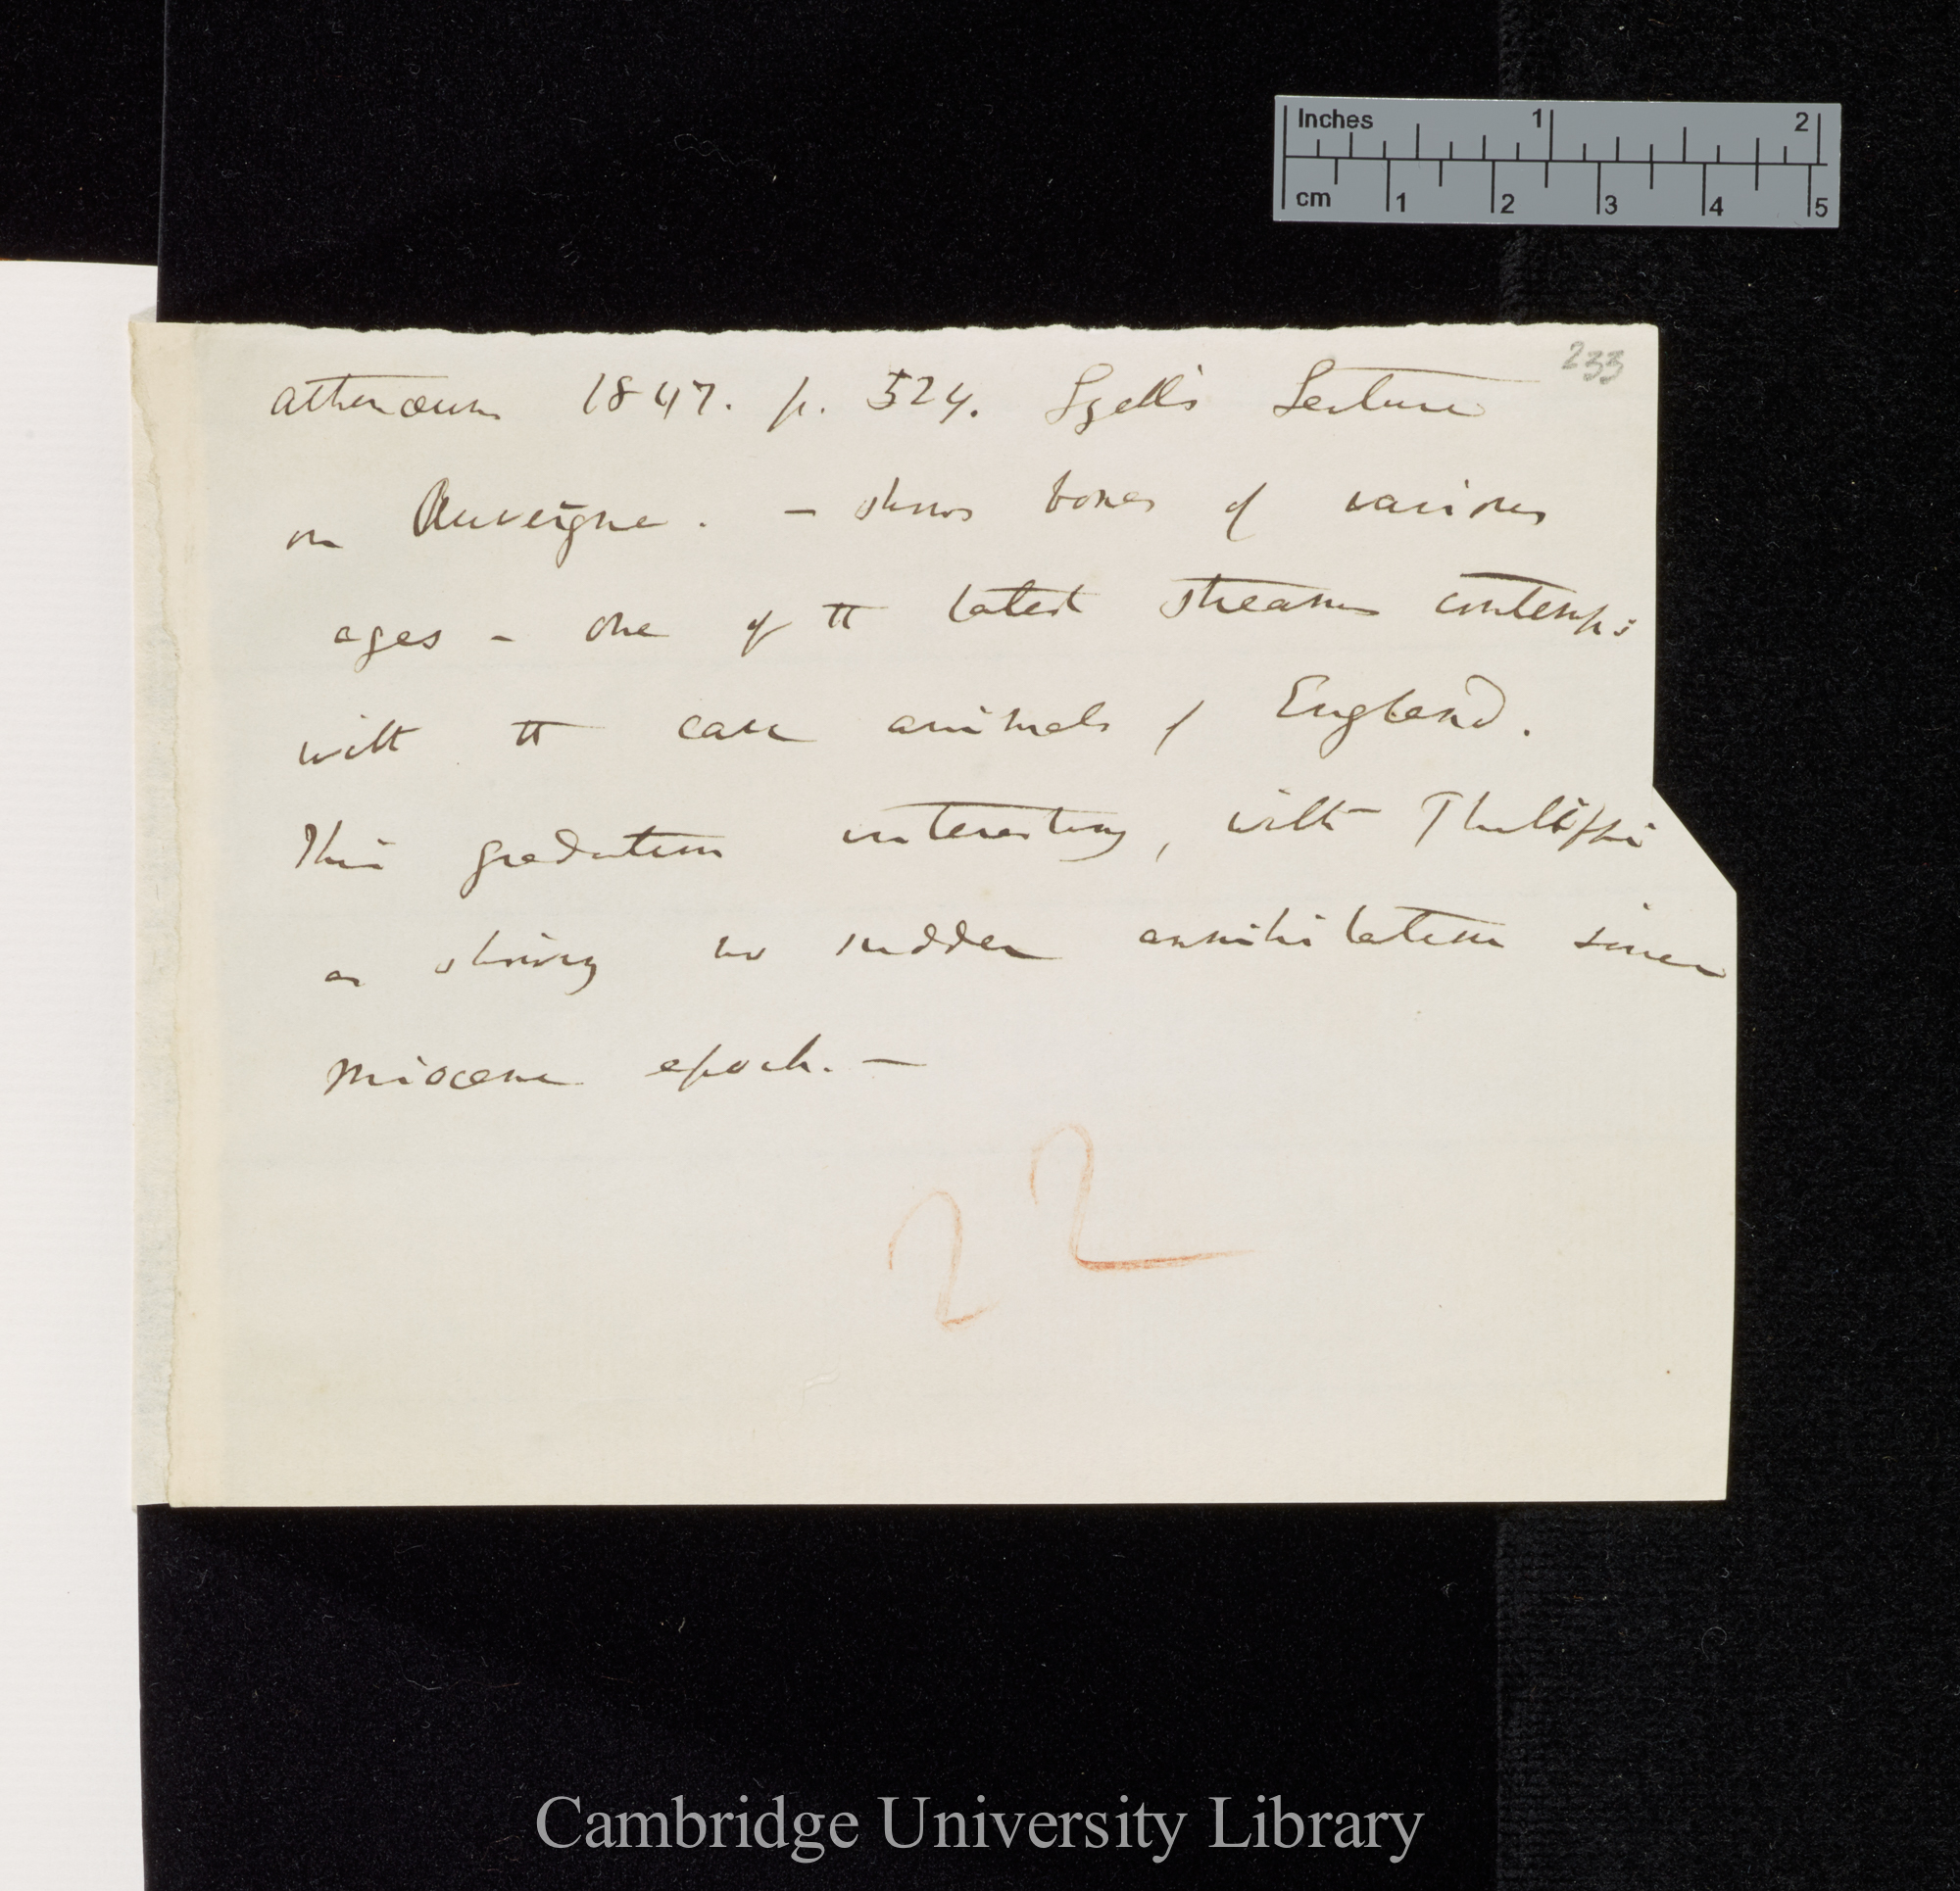 Inches 1 2
cm 1 2 3 4 5
233
Athenæum 1847. p. 524. Lyell's Lecture
on Auvergne. — shows bones of various
ages – one of the latest streams contemp:
with the cave animals of England.
This gradation interesting, with Phillippi
as shewing no sudden annihilation since
Miocene epoch. —
22
Cambridge University Library